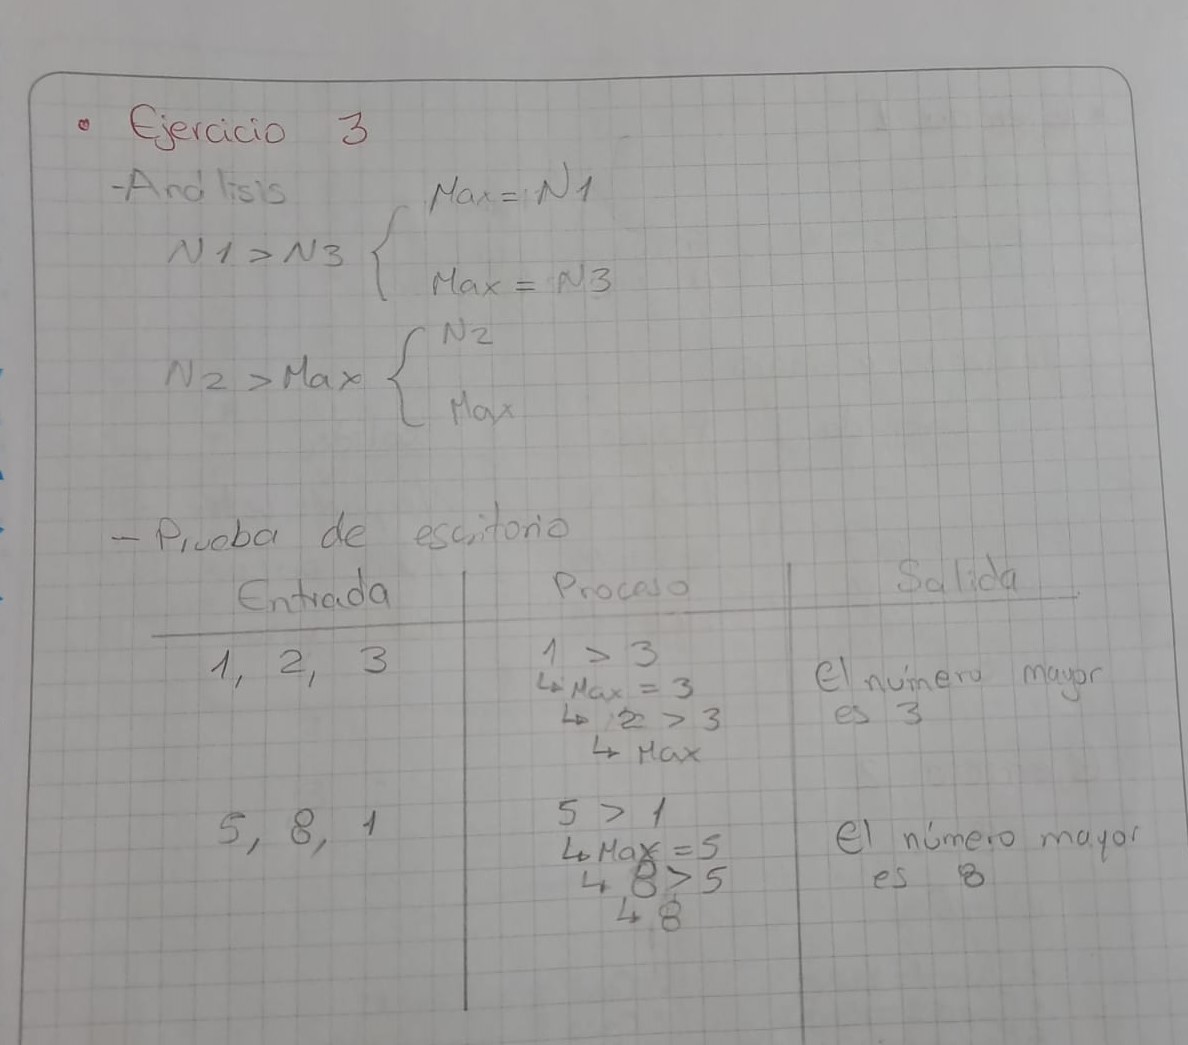 • Ejercicio 3
-Análisis
N1 > N3 { Max = N1
Max = N3
N2 > Max { N2
Max
- Prueba de escritorio
Entrada Proceso Salida
1, 2, 3
1 > 3
↳ Max = 3
↳ 2 > 3
↳ Max
El número mayor
es 3
5, 8, 1
5 > 1
↳ Max = 5
↳ 8 > 5
↳ 8
El número mayor
es 8